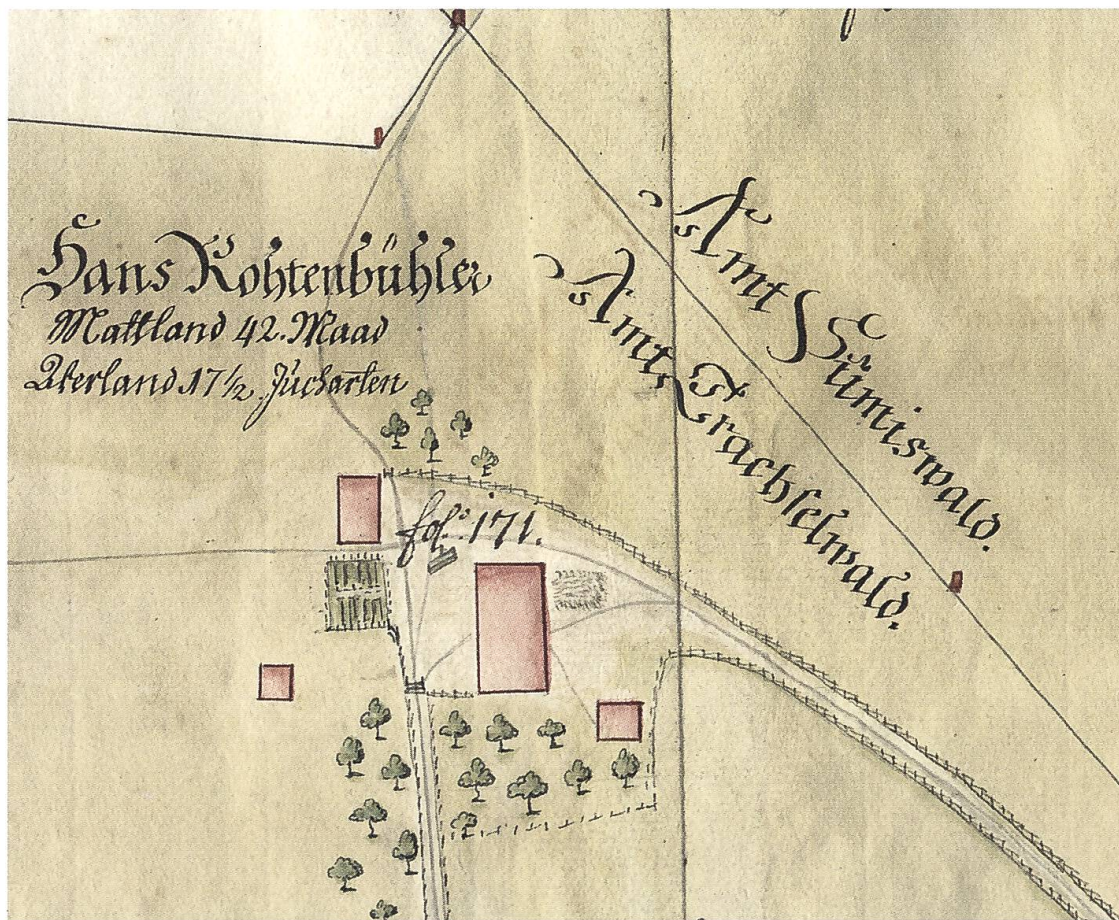 Hans Rohtenbühler
Mattland 42. Maad
Akerland 17 1/2 Jucharten
Amt Sumiswald.
Amt Trachselwald.
fol.° 171.